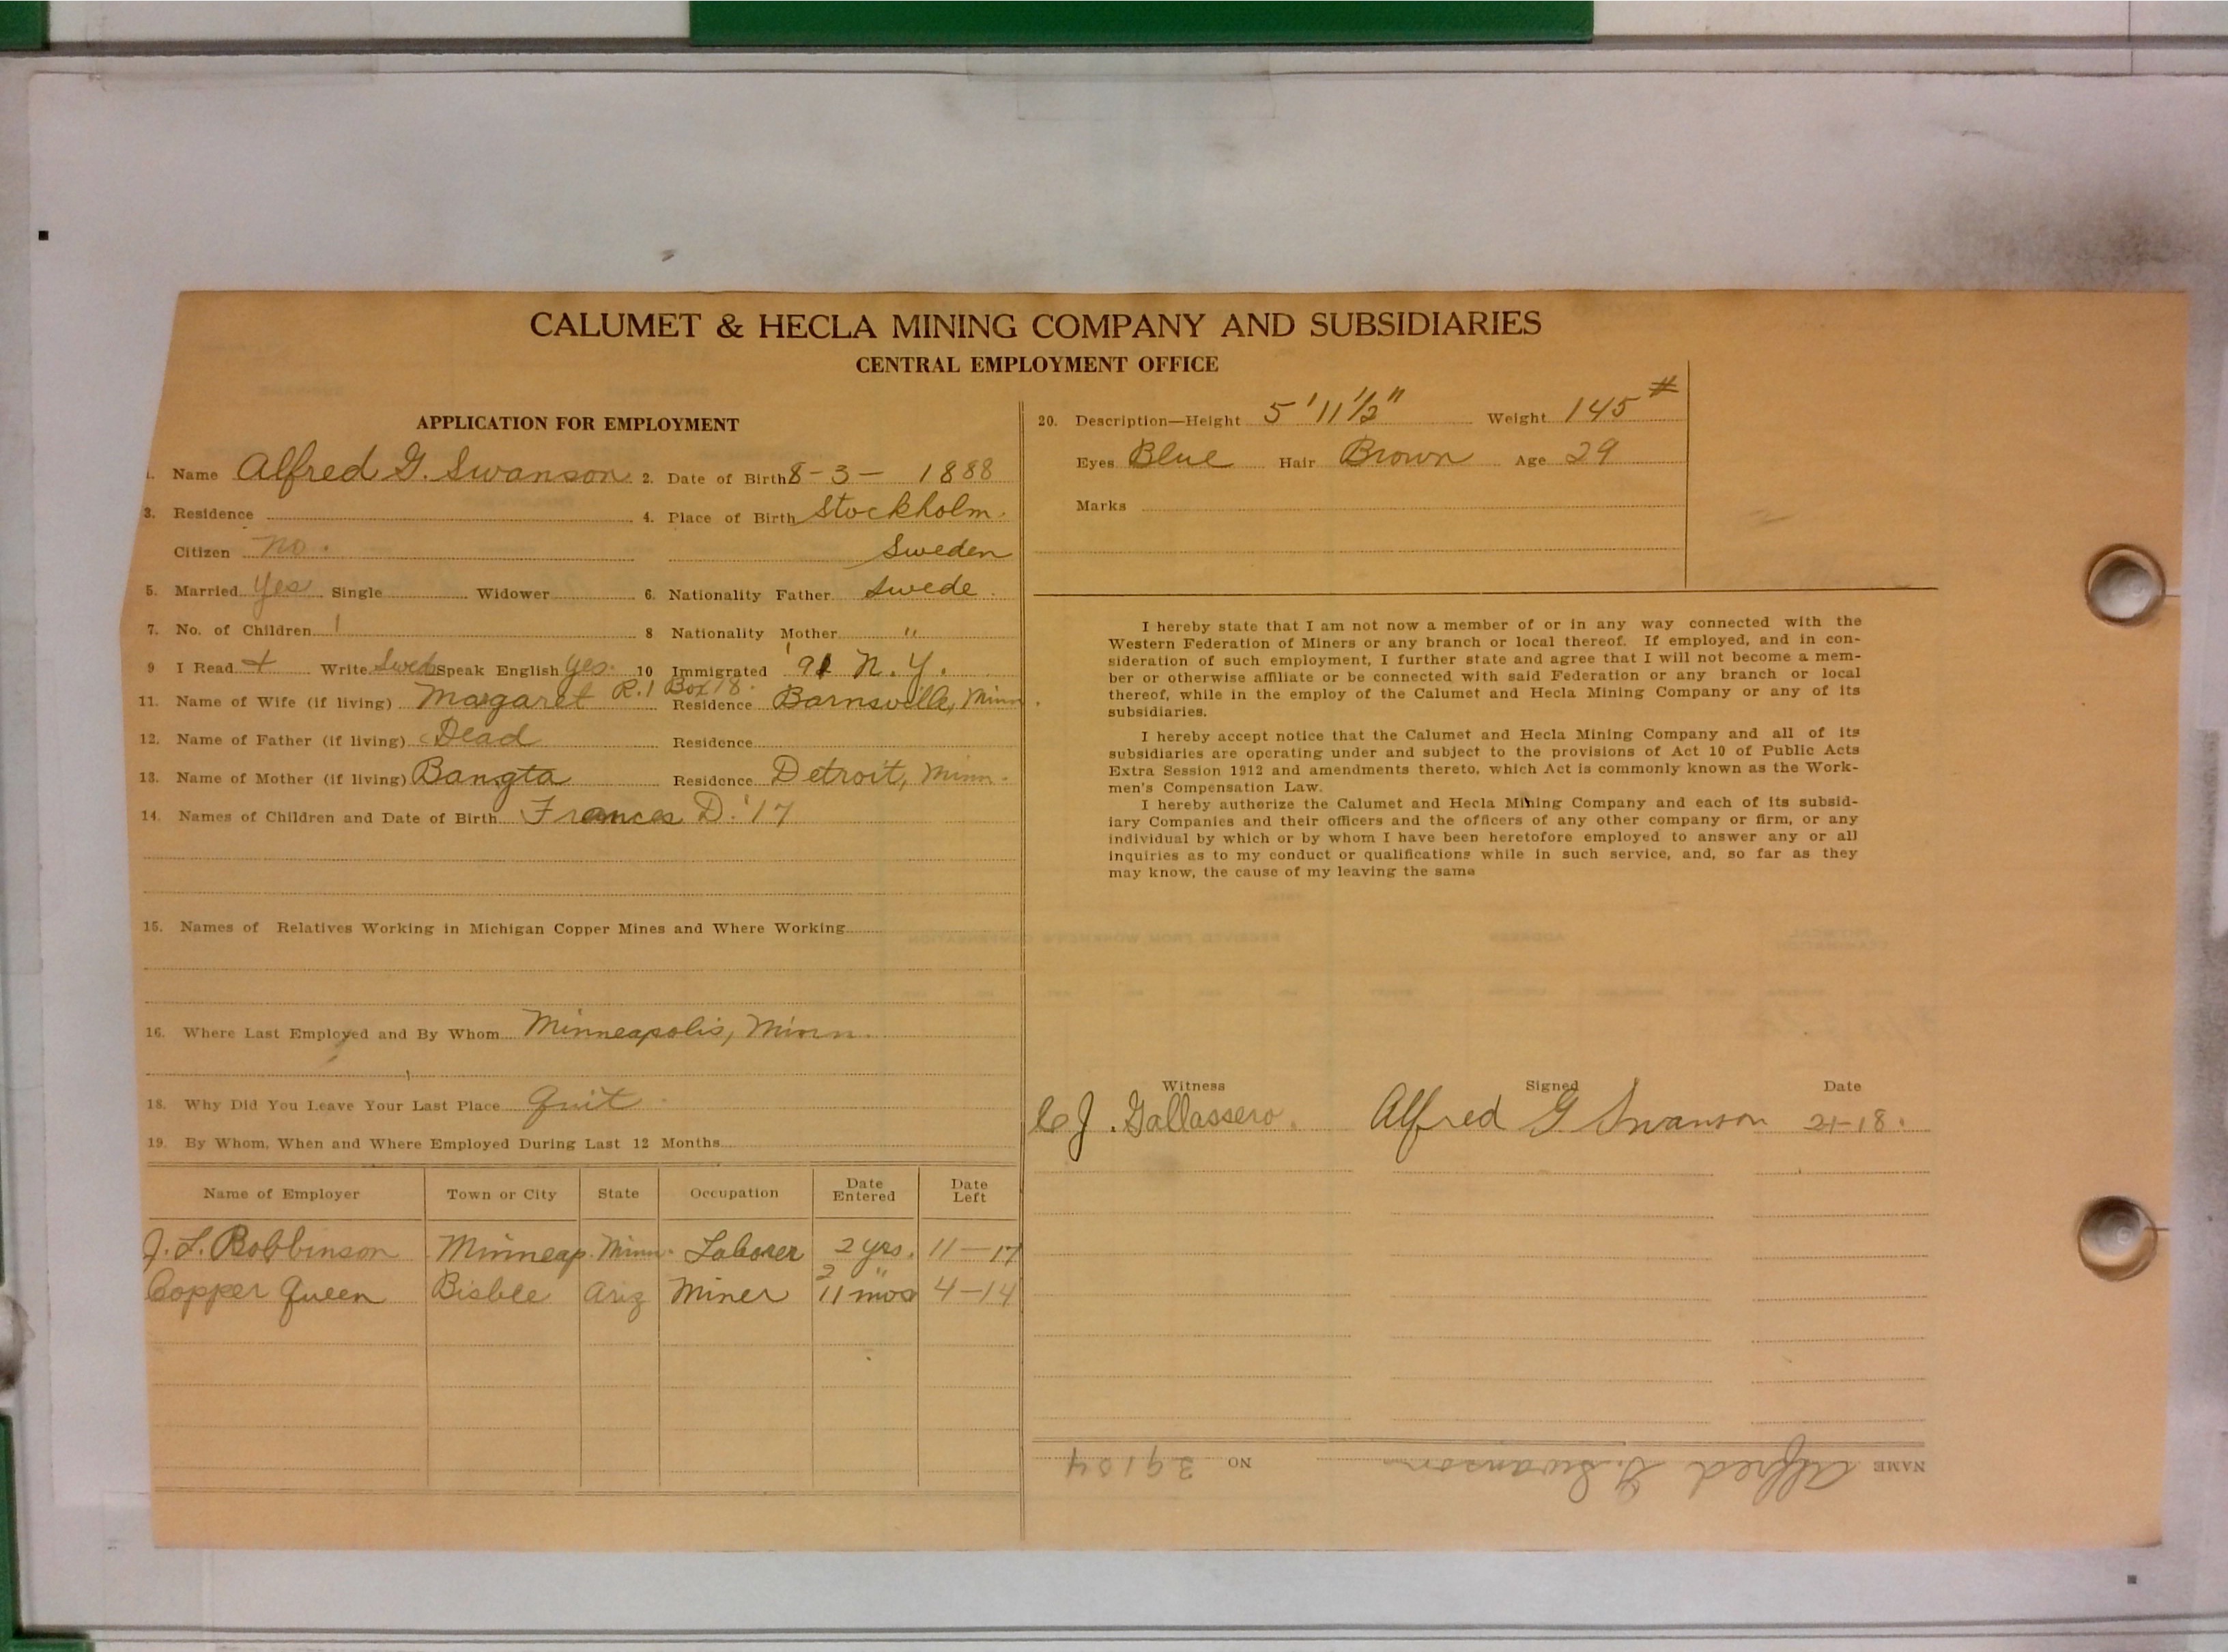 CALUMET & HECLA MINING COMPANY AND SUBSIDIARIES
CENTRAL EMPLOYMENT OFFICE
APPLICATION FOR EMPLOYMENT
1. Name Alfred G. Swanson 2. Date of Birth 8-3-1888
3. Residence 4. Place of Birth Stockholm.
Citizen No. Sweden
5. Married Yes Single Widower 6. Nationality Father Swede.
7. No. of Children 1 8 Nationality Mother "
9 I Read + Write Swed Speak English Yes. 10 Immigrated '91 N.Y.
R.1 Box 18.
11. Name of Wife (if living) Margaret Residence Barnsville, Minn.
12. Name of Father (if living) Dead Residence
13. Name of Mother (if living) Bangta Residence Detroit, Minn.
14. Names of Children and Date of Birth Frances D. '17
15. Names of Relatives Working in Michigan Copper Mines and Where Working
16. Where Last Employed and By Whom Minneapolis, Minn.
18. Why Did You Leave Your Last Place Quit
19. By Whom, When and Where Employed During Last 12 Months
Name of Employer Town or City State Occupation Date Entered Date Left
J. L. Robbinson Minneap. Minn. Laborer 2 yrs. 11-17
Copper Queen Bisbee Ariz Miner 2 " 11 mos 4-14
20. Description—Height 5' 11 1/2" Weight 145 #
Eyes Blue Hair Brown Age 29
Marks
I hereby state that I am not now a member of or in any way connected with the
Western Federation of Miners or any branch or local thereof. If employed, and in con-
sideration of such employment, I further state and agree that I will not become a mem-
ber or otherwise affiliate or be connected with said Federation or any branch or local
thereof, while in the employ of the Calumet and Hecla Mining Company or any of its
subsidiaries.
I hereby accept notice that the Calumet and Hecla Mining Company and all of its
subsidiaries are operating under and subject to the provisions of Act 10 of Public Acts
Extra Session 1912 and amendments thereto, which Act is commonly known as the Work-
men's Compensation Law.
I hereby authorize the Calumet and Hecla Mining Company and each of its subsid-
iary Companies and their officers and the officers of any other company or firm, or any
individual by which or by whom I have been heretofore employed to answer any or all
inquiries as to my conduct or qualifications while in such service, and, so far as they
may know, the cause of my leaving the same
Witness Signed Date
C. J. Gallassero. Alfred G Swanson 2-1-18.
NAME Alfred G. Swanson NO 39104